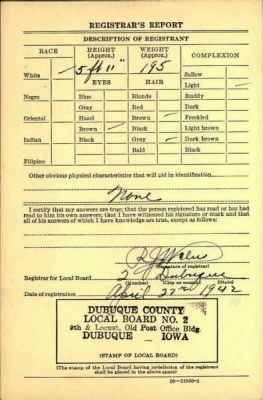 REGISTRAR'S REPORT
DESCRIPTION OF REGISTRANT
RACE HEIGHT (Approx.) WEIGHT (Approx.) COMPLEXION
White 5 ft 11" 195 Sallow
EYES HAIR Light
Negro Blue Blonde Ruddy
Gray Red Dark
Oriental Hazel Brown Freckled
Brown Black Light brown
Indian Black Gray Dark brown
Bald Black
Filipino
Other obvious physical characteristics that will aid in identification
None
I certify that my answers are true; that the person registered has read or has had
read to him his own answers; that I have witnessed his signature or mark and that
all of his answers of which I have knowledge are true, except as follows:
(Signature of registrar)
Registrar for Local Board 2 Dubuque
(Number) (City or county) (State)
Date of registration April 27th 1942
DUBUQUE COUNTY
LOCAL BOARD NO. 2
9th & Locust, Old Post Office Bldg.
DUBUQUE IOWA
(STAMP OF LOCAL BOARD)
(The stamp of the Local Board having jurisdiction of the registrant
shall be placed in the above space)